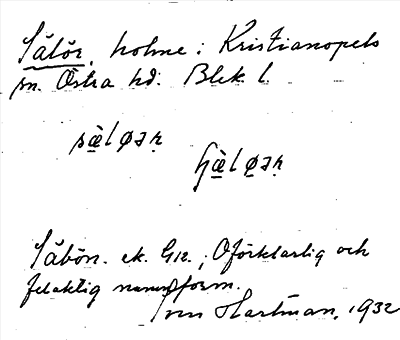 Sälör, holme i Kristianopels
sn. Östra hd. Blek. l.
säløər
hjäləər
Säbön. ek. G12.; Oförklarlig och
felaktig namnform.
Hartman, 1932